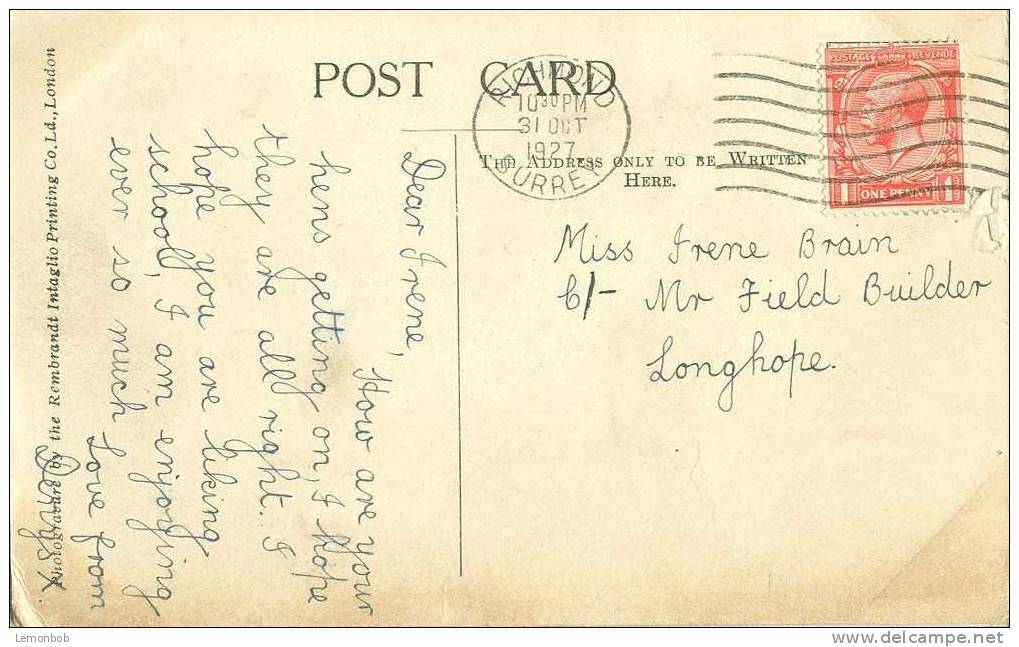 POST CARD
RICHMOND
10 30 PM
31 OCT
1927
SURREY
POSTAGE REVENUE
1D ONE PENNY 1D
THE ADDRESS ONLY TO BE WRITTEN
HERE.
Miss Irene Brain
C/- Mr Field Builder
Longhope.
Dear Irene,
How are your
hens getting on, I hope
they are all right. I
hope you are liking
school, I am enjoying
ever so much Love from
Denys x
Photogravure by the Rembrandt Intaglio Printing Co. Ld., London
Lemonbob
www.delcampe.net